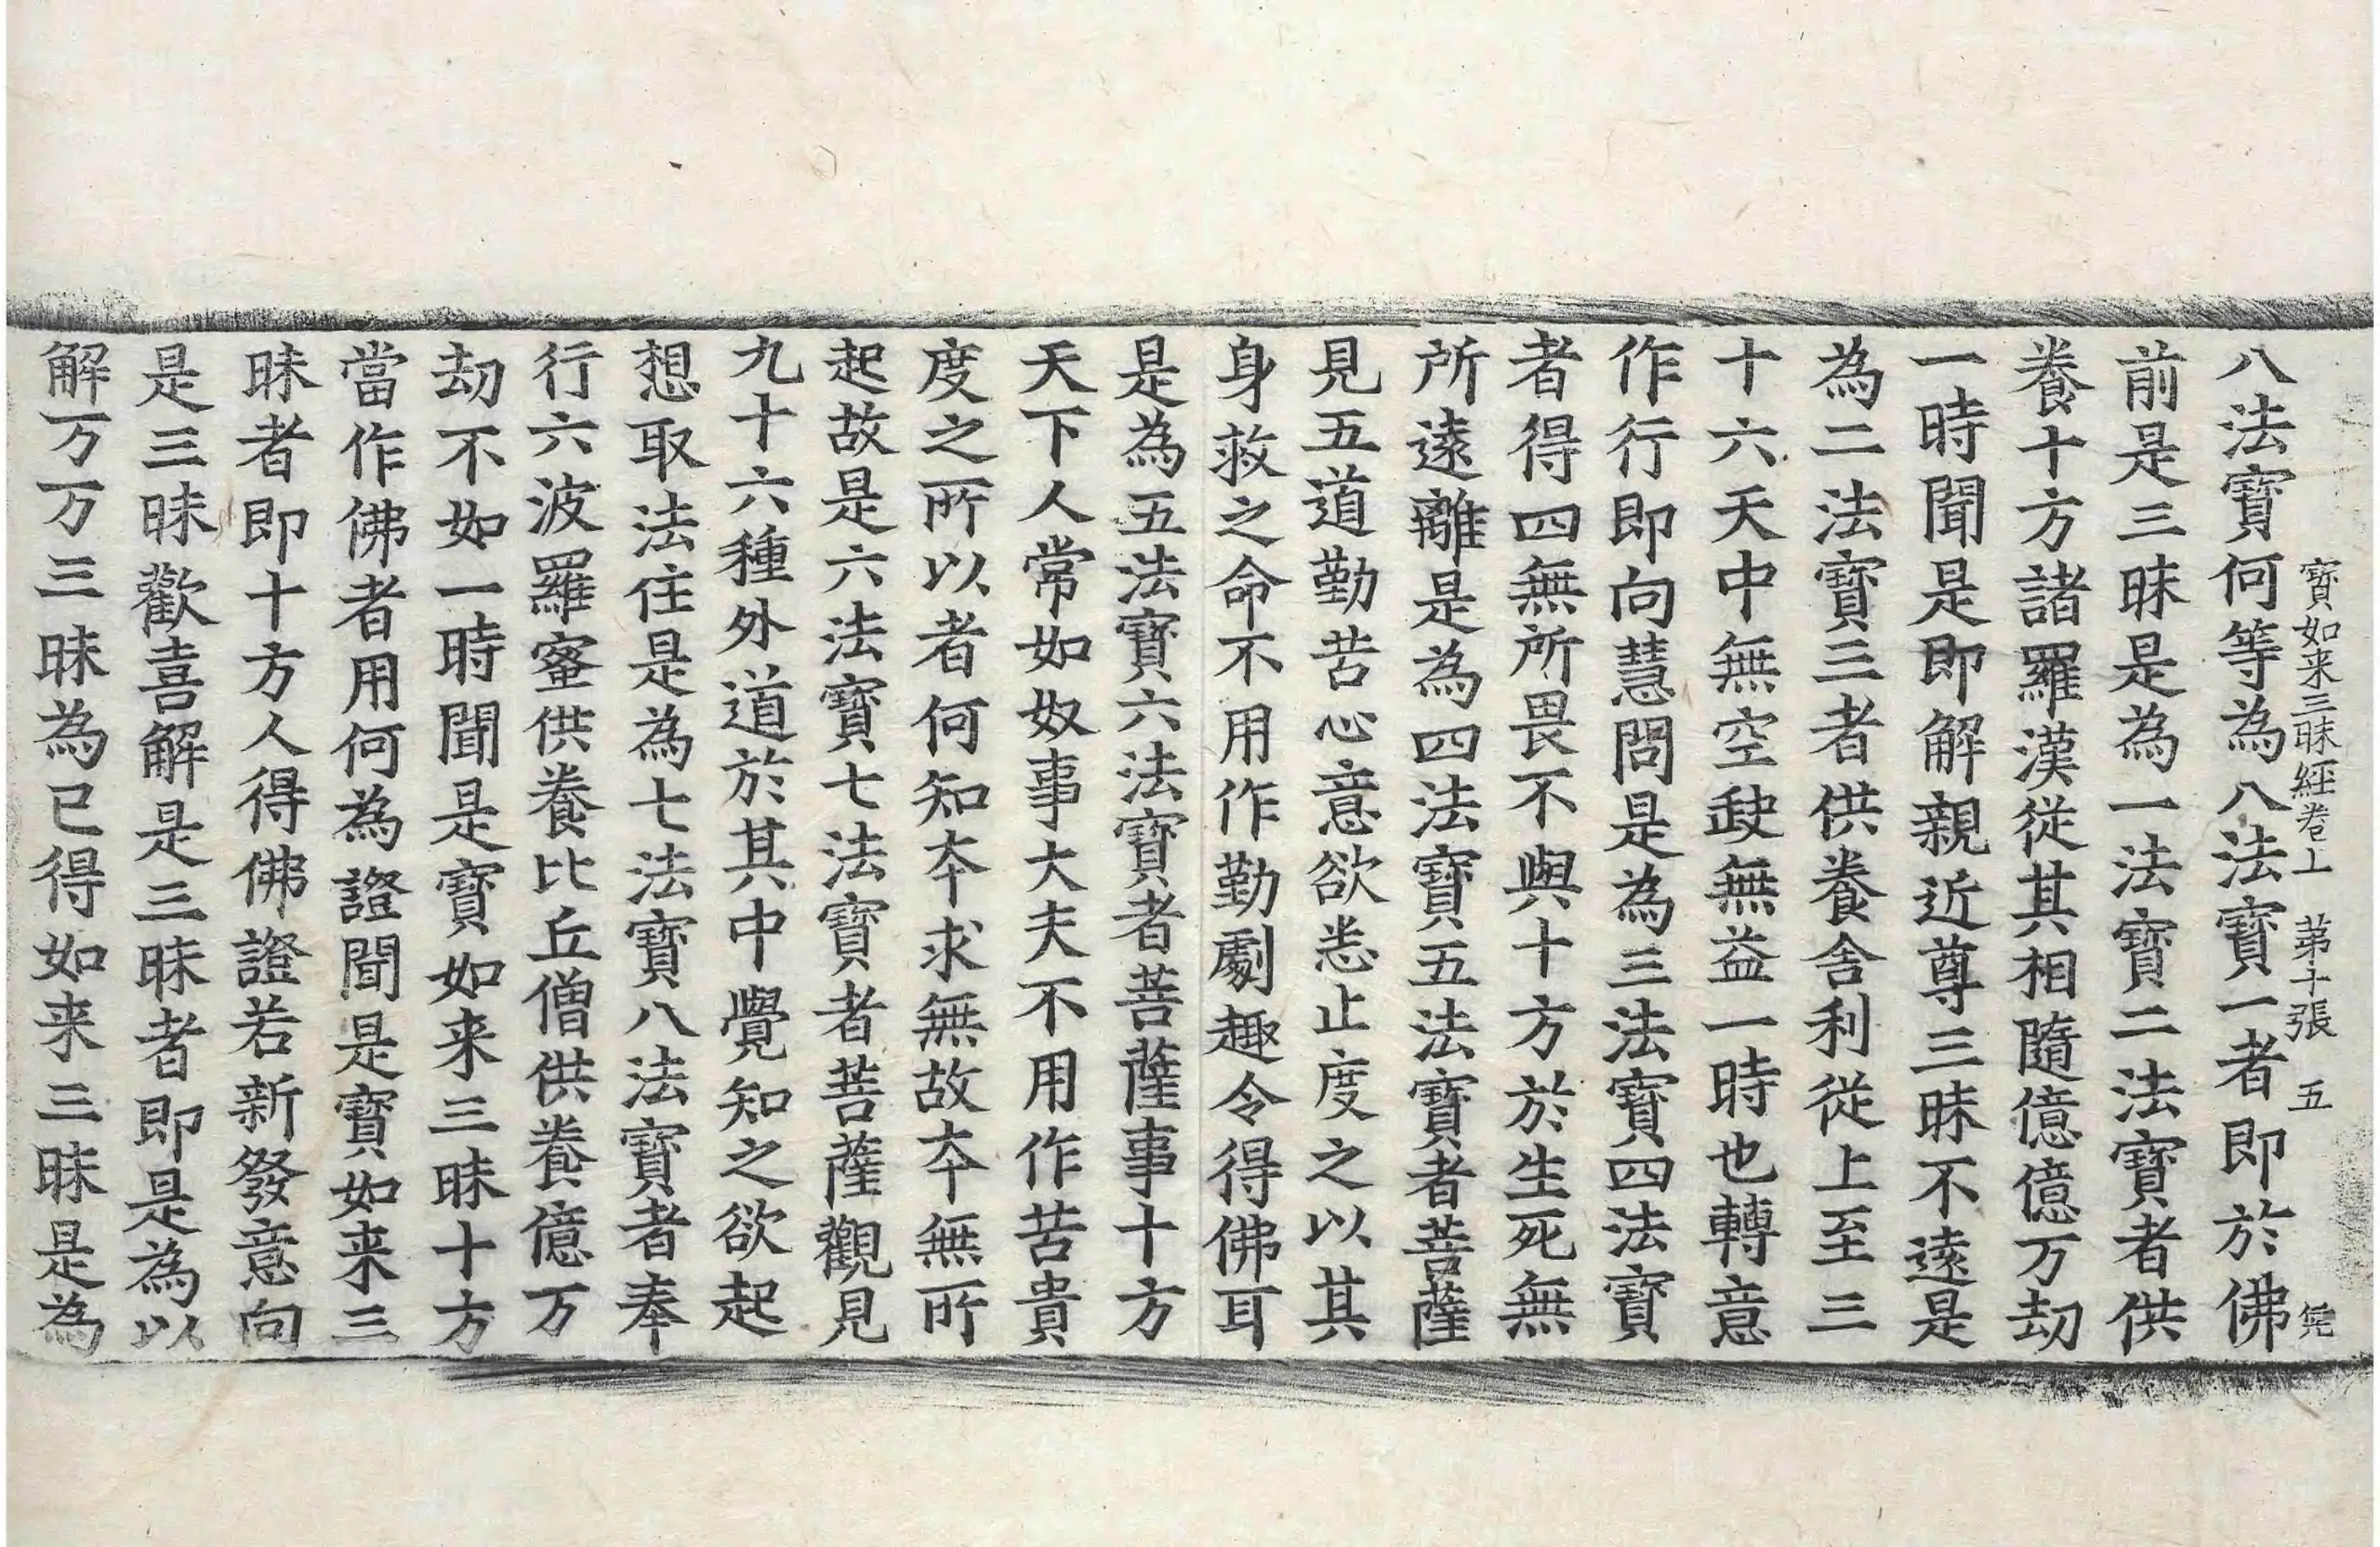 寶如来三昧經卷上　苐十張　五
八法寶何等為八法寶一者即於佛
前是三昧是為一法寶二法寶者供
養十方諸羅漢從其相隨億億万劫
一時聞是即解親近尊三昧不遠是
為二法寶三者供養舍利從上至三
十六天中無空缺無益一時也轉意
作行即向慧問是為三法寶四法寶
者得四無所畏不與十方於生死無
所遠離是為四法寶五法寶者菩薩
見五道勤苦心意欲悉止度之以其
身救之命不用作勤劇趣令得佛耳
是為五法寶六法寶者菩薩事十方
天下人常如奴事大夫不用作苦貴
度之所以者何知夲求無故夲無所
起故是六法寶七法寶者菩薩觀見
九十六種外道於其中覺知之欲起
想取法住是為七法寶八法寶者奉
行六波羅蜜供養比丘僧供養億万
劫不如一時聞是寶如来三昧十方
當作佛者用何為證聞是寶如来三
昧者即十方人得佛證若新發意向
是三昧歡喜解是三昧者即是為以
解万万三昧為已得如来三昧是為